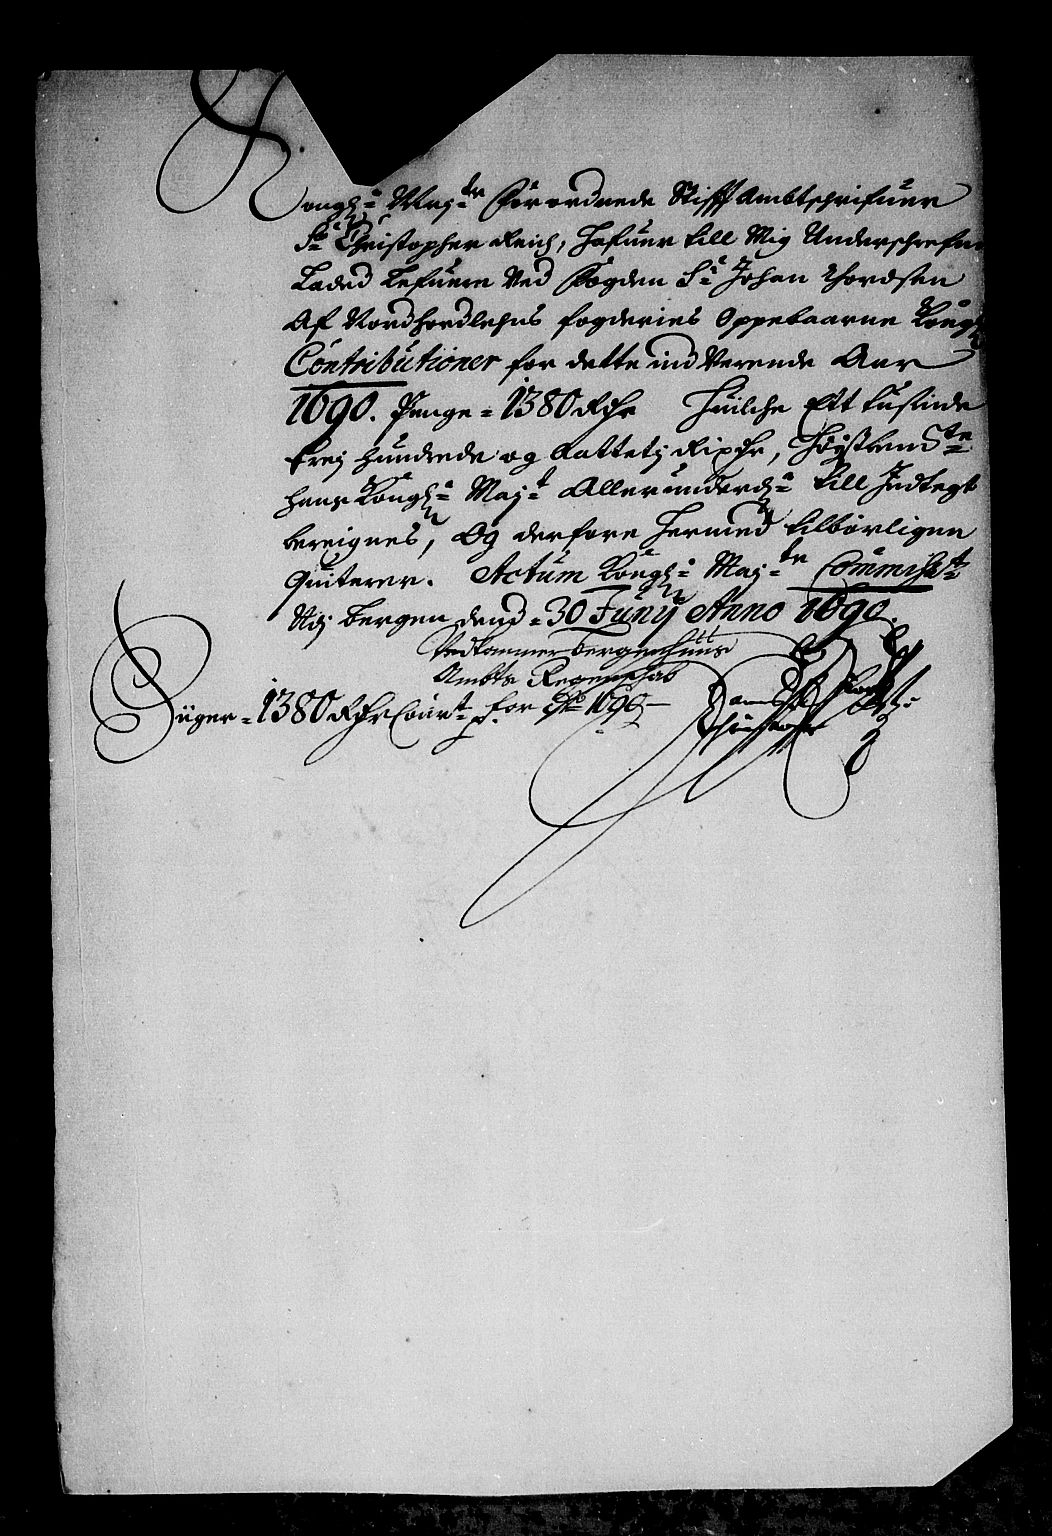 Kongl: Maj:ter Forordnede Stifft Ambtschrifuer
Sr Christopher Reich, hafuer till Mig Underschrefne
Laded Lefuere Ved Fogden Sr Johan Thordsen
Af Nordhordlehns fogderies Oppebaarne Kongl:
Contributioner for dette indVerende Aar
1690. Penge = 1380 Rdr Huilche Ett tusinde
trej hundrede og Aattetj Rixdr, Høystbem:te
hans Kongl: Maj:t Allerunderd: till Indtegt
bereignes, Og derfore hermed tilbørligen
Quiterer. Actum Kongl: Maj:ter Commissar:t
Udj bergen dend = 30 Junij Anno 1690.
Vedkommer bergenhuus
Ambts Regenschab
Siger = 1380 Rdr Cour:t for Ao 1690